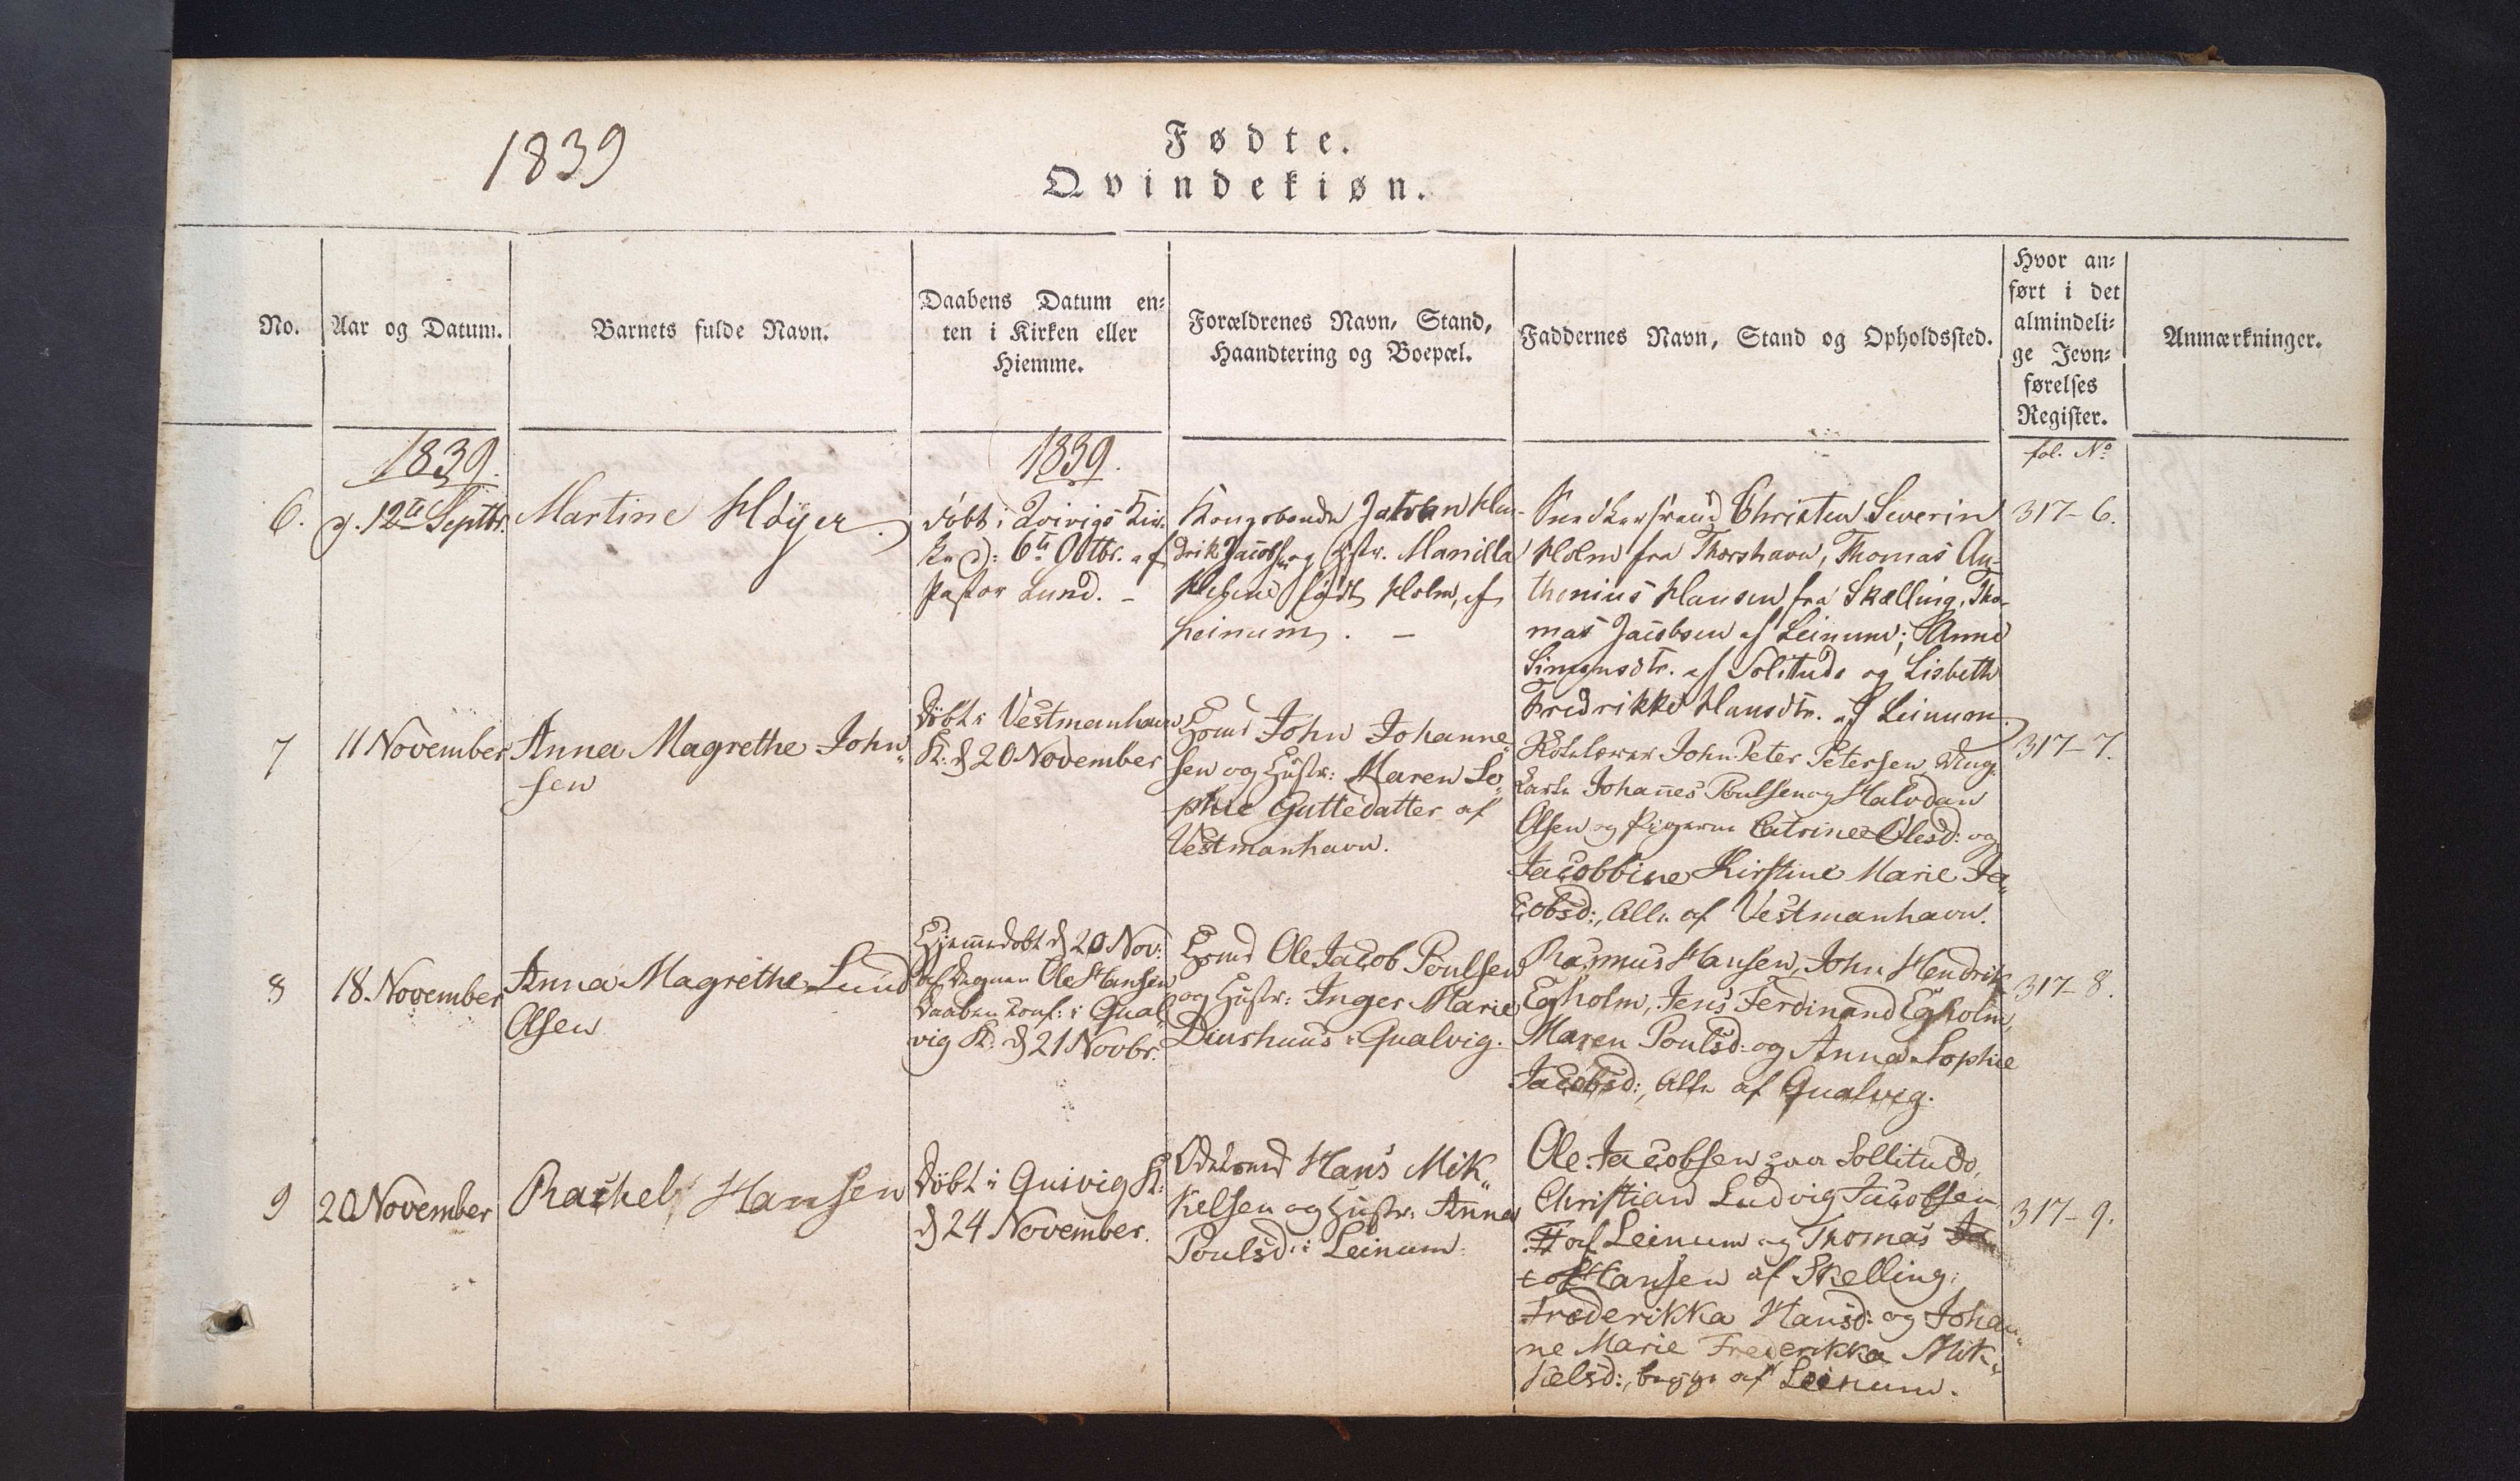 1839
Fødte.
Qvindekiøn.
No.
Aar og Datum.
Barnets fulde Navn.
Daabens Datum en=
ten i Kirken eller
Hiemme.
Forældrenes Navn, Stand,
Haandtering og Boepæl.
Faddernes Navn, Stand og Opholdssted.
Hvor an=
ført i det
almindeli=
ge Jevn=
førelses
Register.
Anmærkninger.
fol. No
1839.
1839.
6.
12te Septbr.
Martine Høyer
døbt i Qvivigs Kir-
ke d: 6te Octbr. af
Pastor Lund. -
Kongsbonde Jacob Hen-
drik Jacobsen og Hstr. Manilla
Helene født Holm, af
Leinum. -
Christen Severin
Holm fra Thorshavn, Thomas An-
thonius Hansen fra Skælling, Tho-
mas Jacobsen af Leinum; Anne
Simonsdtr. af Solitude og Lisbeth
Fredrikke Hansdtr. af Leinum.
317-6.
7
11 November
Anna Magrethe John„
sen
Døbt i Vestmanhavn
K. d 20 November
Huusmd John Johanne„
sen og Hustr: Maren So„
phie Guttedatter af
Vestmanhavn.
John Peter Petersen, Ung„
karle Johannes Poulsen og Halvdan
Olsen og Pigerne Catrine Olesd: og
Jacobbine Kirstine Marie Ja„
cobsd:, Alle af Vestmanhavn.
317-7.
8
18. November
Anna Magrethe Lund
Olsen
Hjemmedøbt d 20 Nov:
af Degnen Ole Hansen
Daaben conf: i Qual„
vig K. d 21 Novbr.
Huusmd Ole Jacob Poulsen
og Hustr: Inger Marie
Diurhuus i Qualvig.
Rasmus Hansen, John Hendrik
Egholm, Jens Ferdinand Egholm,
Maren Poulsd: og Anna Sophie
Jacobsd:, Alle af Qualvig.
317-8.
9
20 November
Rachel Hansen
Døbt i Quivig K:
d 24 November.
Odelsmd Hans Mik„
kelsen og Hustr: Anna
Poulsd: i Leinum.
Ole Jacobsen paa Sollitude,
Christian Ludvig Jacobsen
af Leinum og Thomas Ja
cobHansen af Skelling:
Frederikka Hansd: og Johan„
ne Marie Frederikka Mik„
kelsd:, begge af Leinum.
317-9.